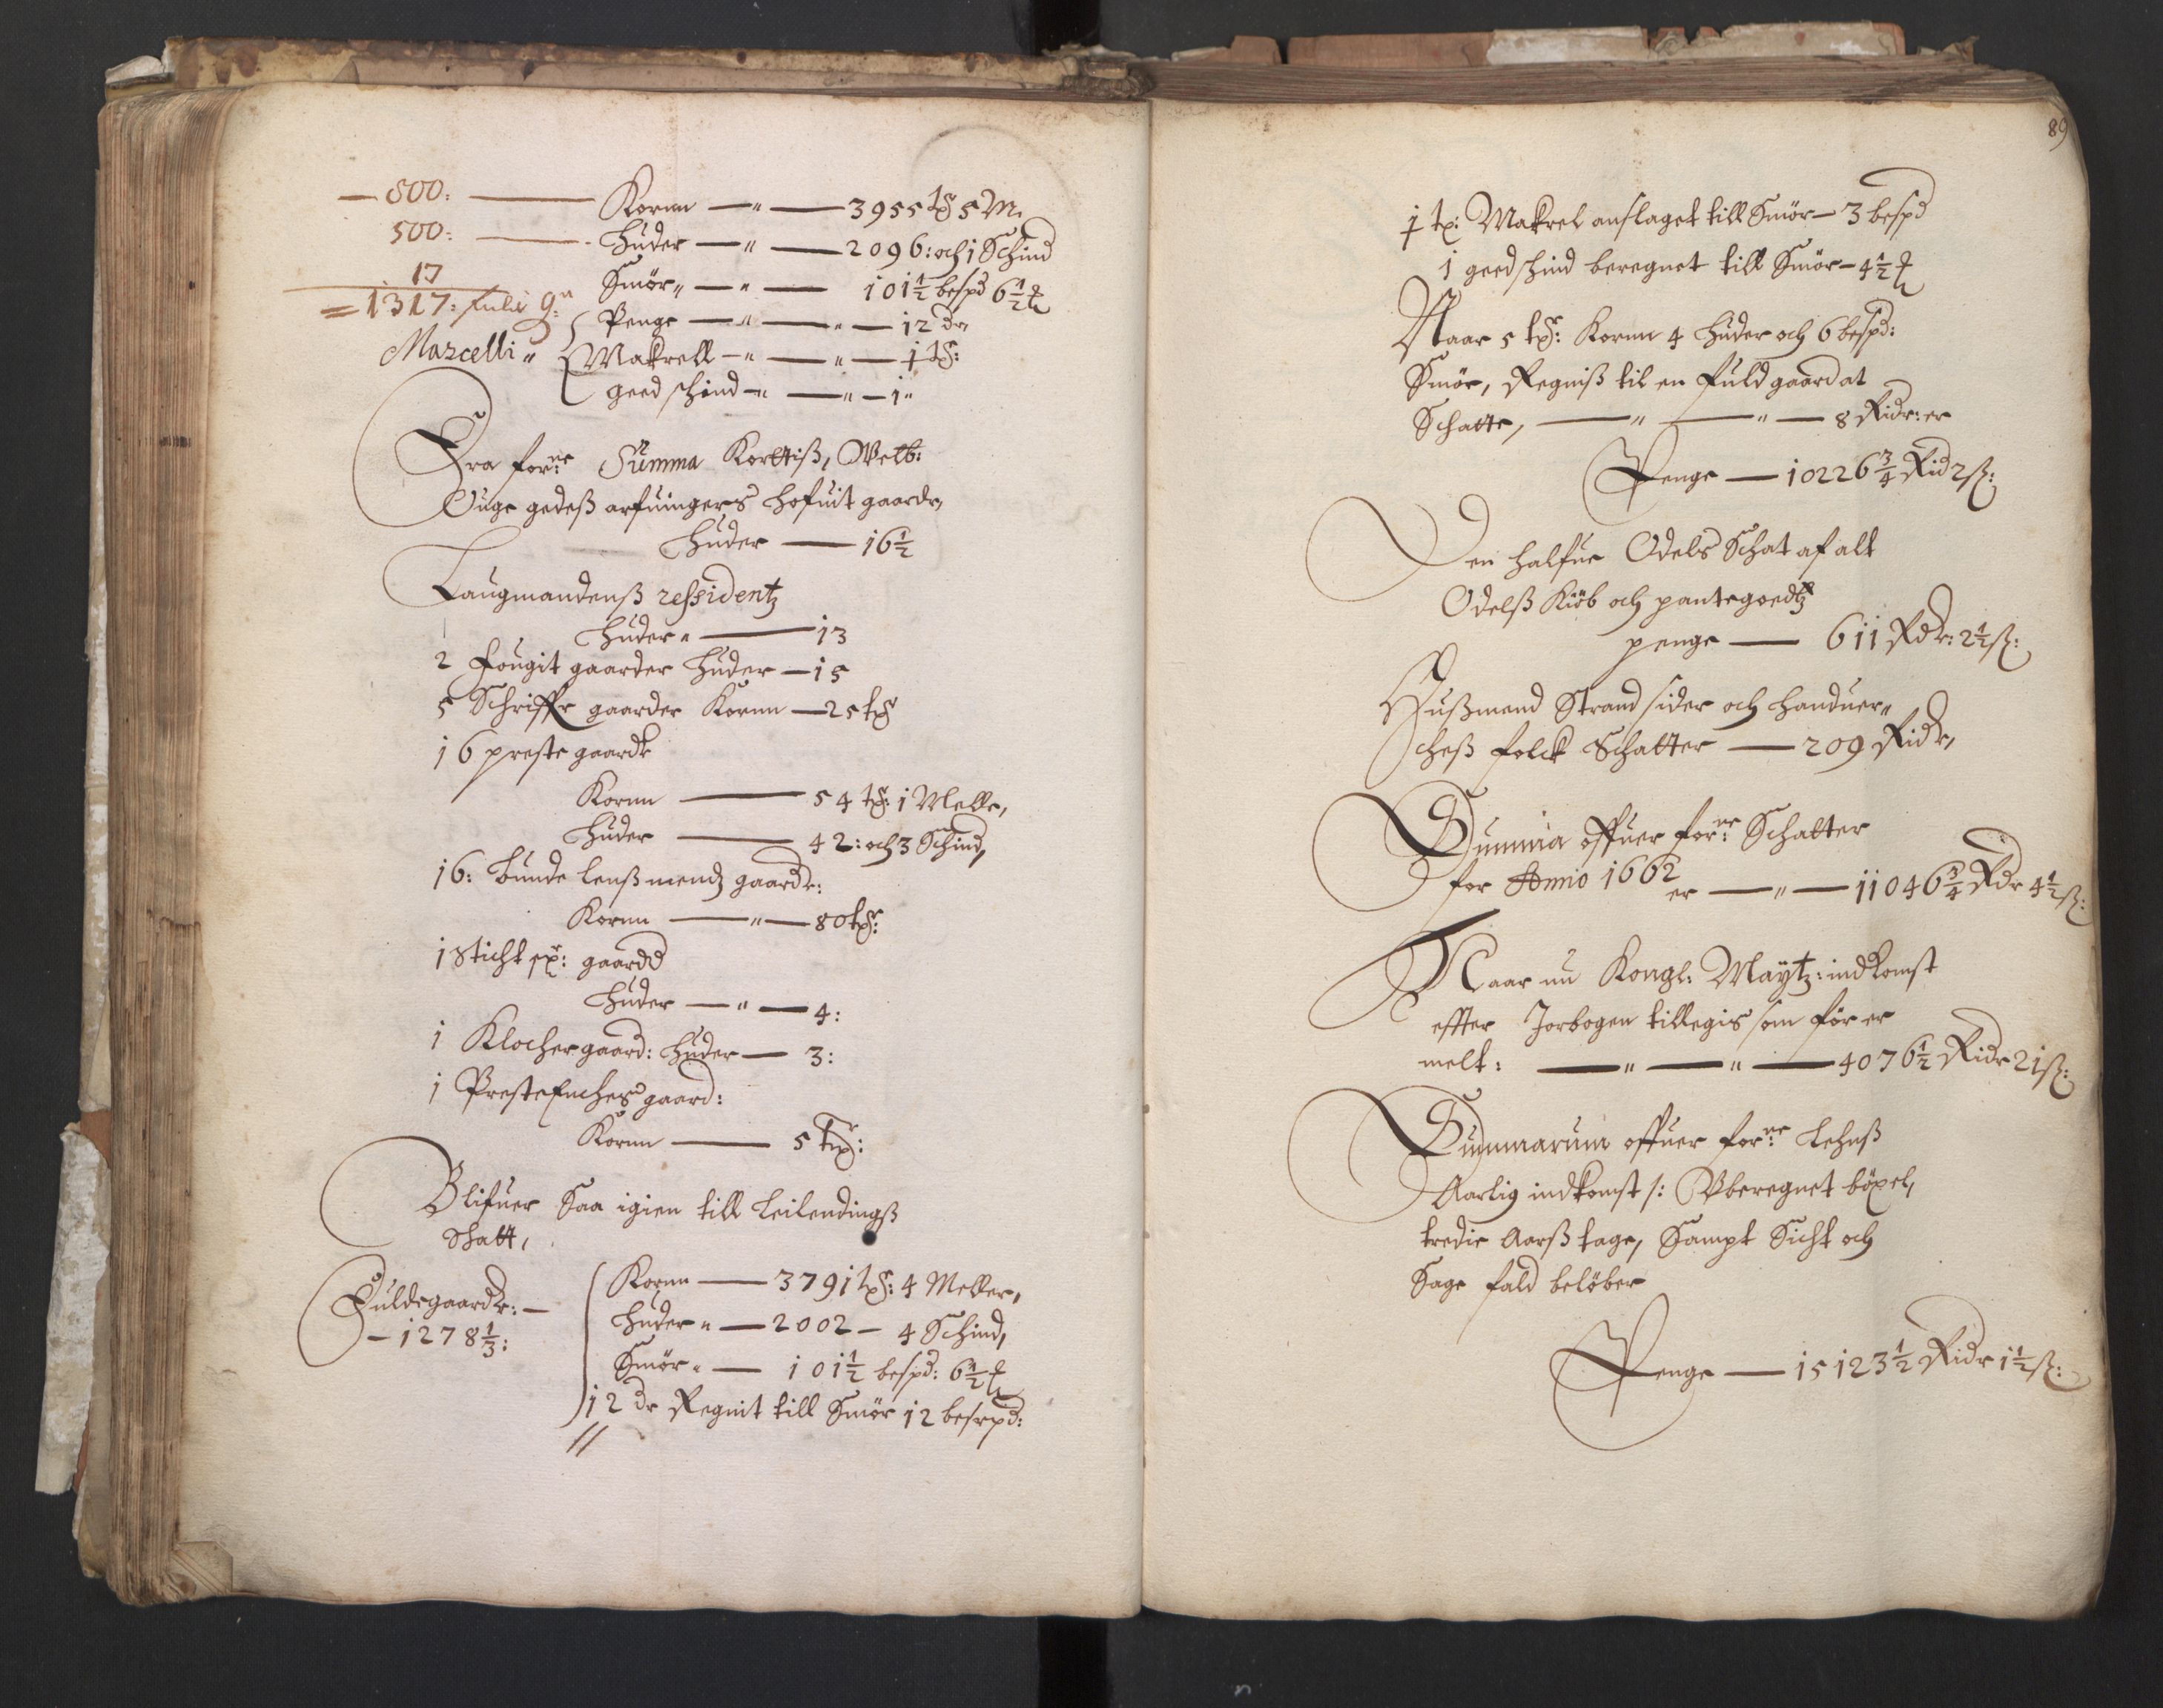 — 800: — Kornn — " — 3955 tß 5 M.
500: — Huder — " — 2096: och 1 Schind
17 Smör " — " — 101½ bespd 6½ ℔
= 1317: fulde g:
Penge — " — " — 12 dr
Marcelli " Makrell — " — " — 1 tß:
geedschind — " — " — 1 "
Fra forne Summa Kortiß, Welb:
Ouge gedeß arfuingers hofuit gaardr,
Huder — 16½
Laugmandenß ressidentz
Huder " — 13
2 Fougit gaarder Huder — 15
5 Schriffr gaarder Kornn — 25 tß
16 preste gaardr
Kornn — 54 tß: 1 Melle,
Huder — 42: och 3 Schind,
16: bunde lenßmendz gaardr:
Kornn — " — 80 tß:
1 Sticht gaardd
Huder — " — 4:
1 Klocher gaard: Huder — 3:
1 Prestenches gaard:
Kornn — 5 tß:
Blifuer Saa igien till Leilendingß
Schatt,
Fuldegaardr: — Kornn — 3791 tß: 4 Meller,
— 1278⅓: Huder " — 2002 — 4 Schind,
Smör " — 101½ bespd: 6½ ℔
12 dr Regnit till Smör 12 bespd:
//
89
1 tß: Makrel anslaget till Smör — 3 bespd
1 geedschind beregnet till Smör — 4½ ℔
Naar 5 tß: Kornn 4 Huder och 6 bespd:
Smör, Regniß til en fuld gaard at
Schatte, — " — " — 8 Ridr: er
Penge — 10226¾ Rid 2 ß:
Den halfue Odels Schat af alt
Odelß Kiöb och pantegoedtz
penge — 611 Rdr: 2½ ß:
Hußmend Strandsider och handuer"
cheß folck Schatter — 209 Ridr,
Summa offuer forne Schatter
for Annio 1662 er — " — 11046¾ Rdr 4½ ß:
Naar nu Kongl: Maytz: indkomst
effter Jorbogen tillegis som för er
melt: — " — " — 4076½ Ridr 21 ß:
Summarum offuer forne Lehnß
Aarlig indkomst /: Vberegnet böxel,
tredie Aarß tage, Sampt Sicht och
Sage fald belöber
Penge — 15123½ Ridr 1½ ß: